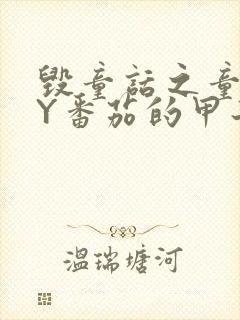 毁童话之童
Y番茄的甲
温瑞塘河